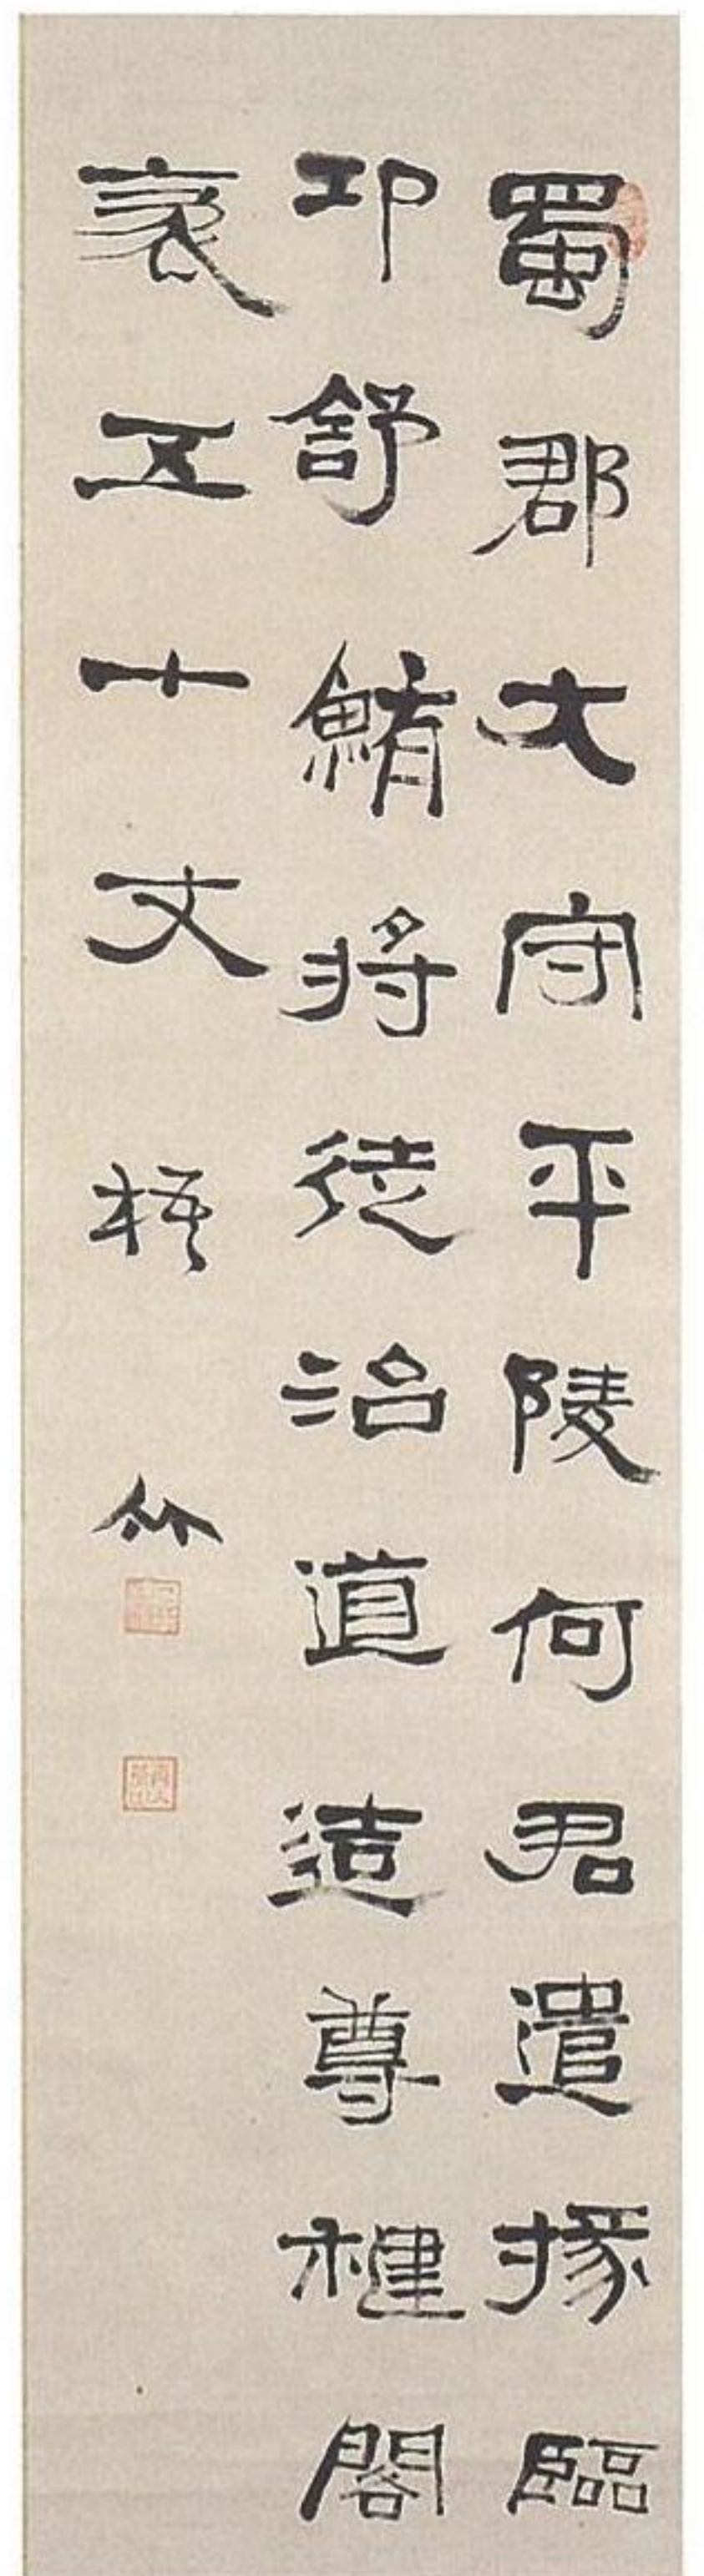 蜀郡大守平陵何君遣掾臨
邛舒鮪將徒治道造尊楗閣
袤五十丈 梧竹